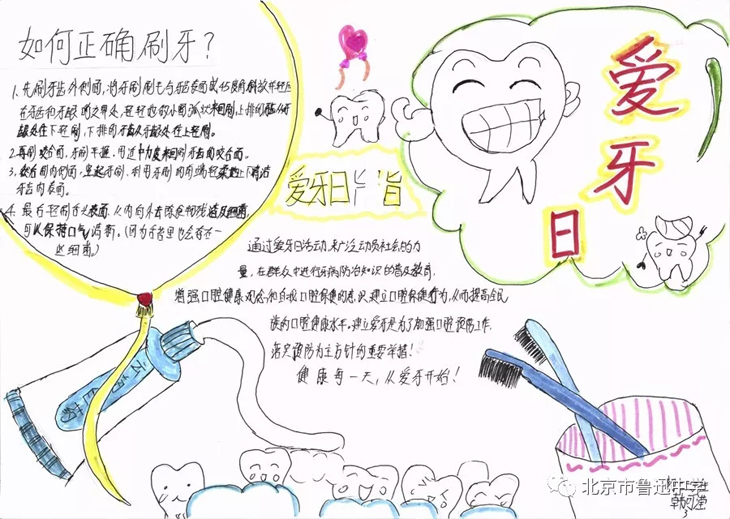 如何正确刷牙？
1. 先刷牙齿外侧面，将牙刷刷毛与牙齿表面成45度角斜放并轻压
在牙齿和牙龈的交界处，轻轻地做小圆弧状来回刷，上排的牙齿从牙
龈处往下轻刷，下排的牙齿从牙龈处往上轻刷。
2. 再刷咬合面，牙刷平握，用适中力度来回刷牙齿的咬合面。
3. 刷牙齿内侧面，竖起牙刷，利用牙刷的前端轻柔地上下清洁
牙齿内表面。
4. 最后轻刷舌头表面，从内向外去除食物残渣及细菌，
可以保持口气清新。（因为舌苔里也会存在一
些细菌）
爱牙日
爱牙日
通过爱牙日活动，来广泛动员社会的力
量，在群众中进行牙病防治知识的普及教育，
增强口腔健康观念和自我口腔保健的意识，建立口腔保健行为，从而提高全民
族的口腔健康水平，建立爱牙日是为了加强口腔预防工作，
落实预防为主方针的重要举措！
健康每一天，从爱牙开始！
北京市鲁迅中学